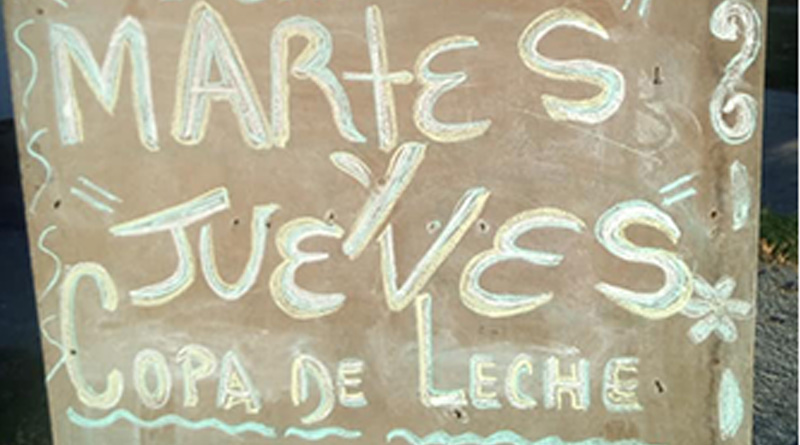 MARtES
Y
JUEVES
COPA DE LECHE